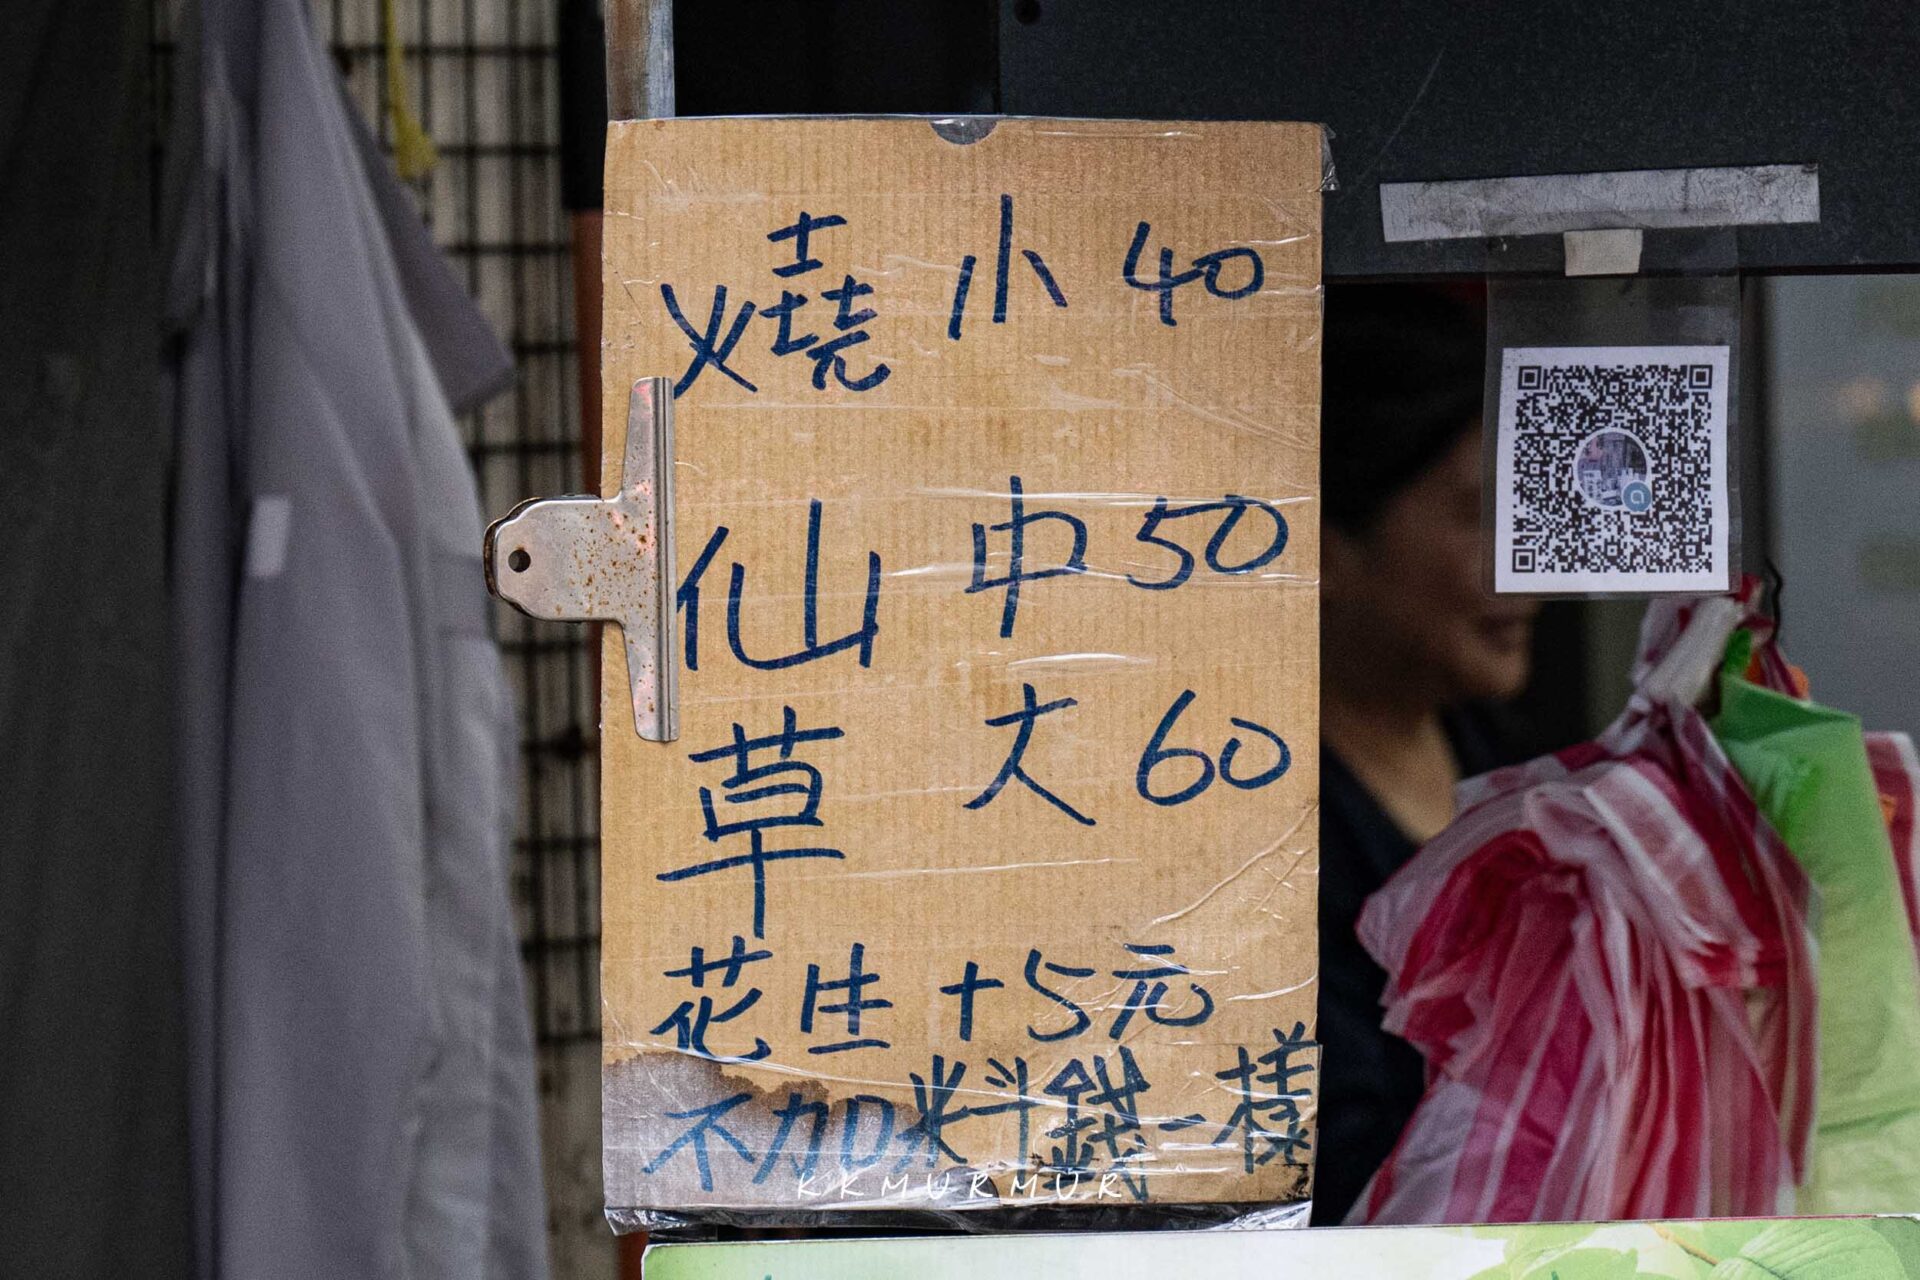 燒仙草
小 40
中 50
大 60
花生 +5元
不加料錢一樣
KKMURMUR